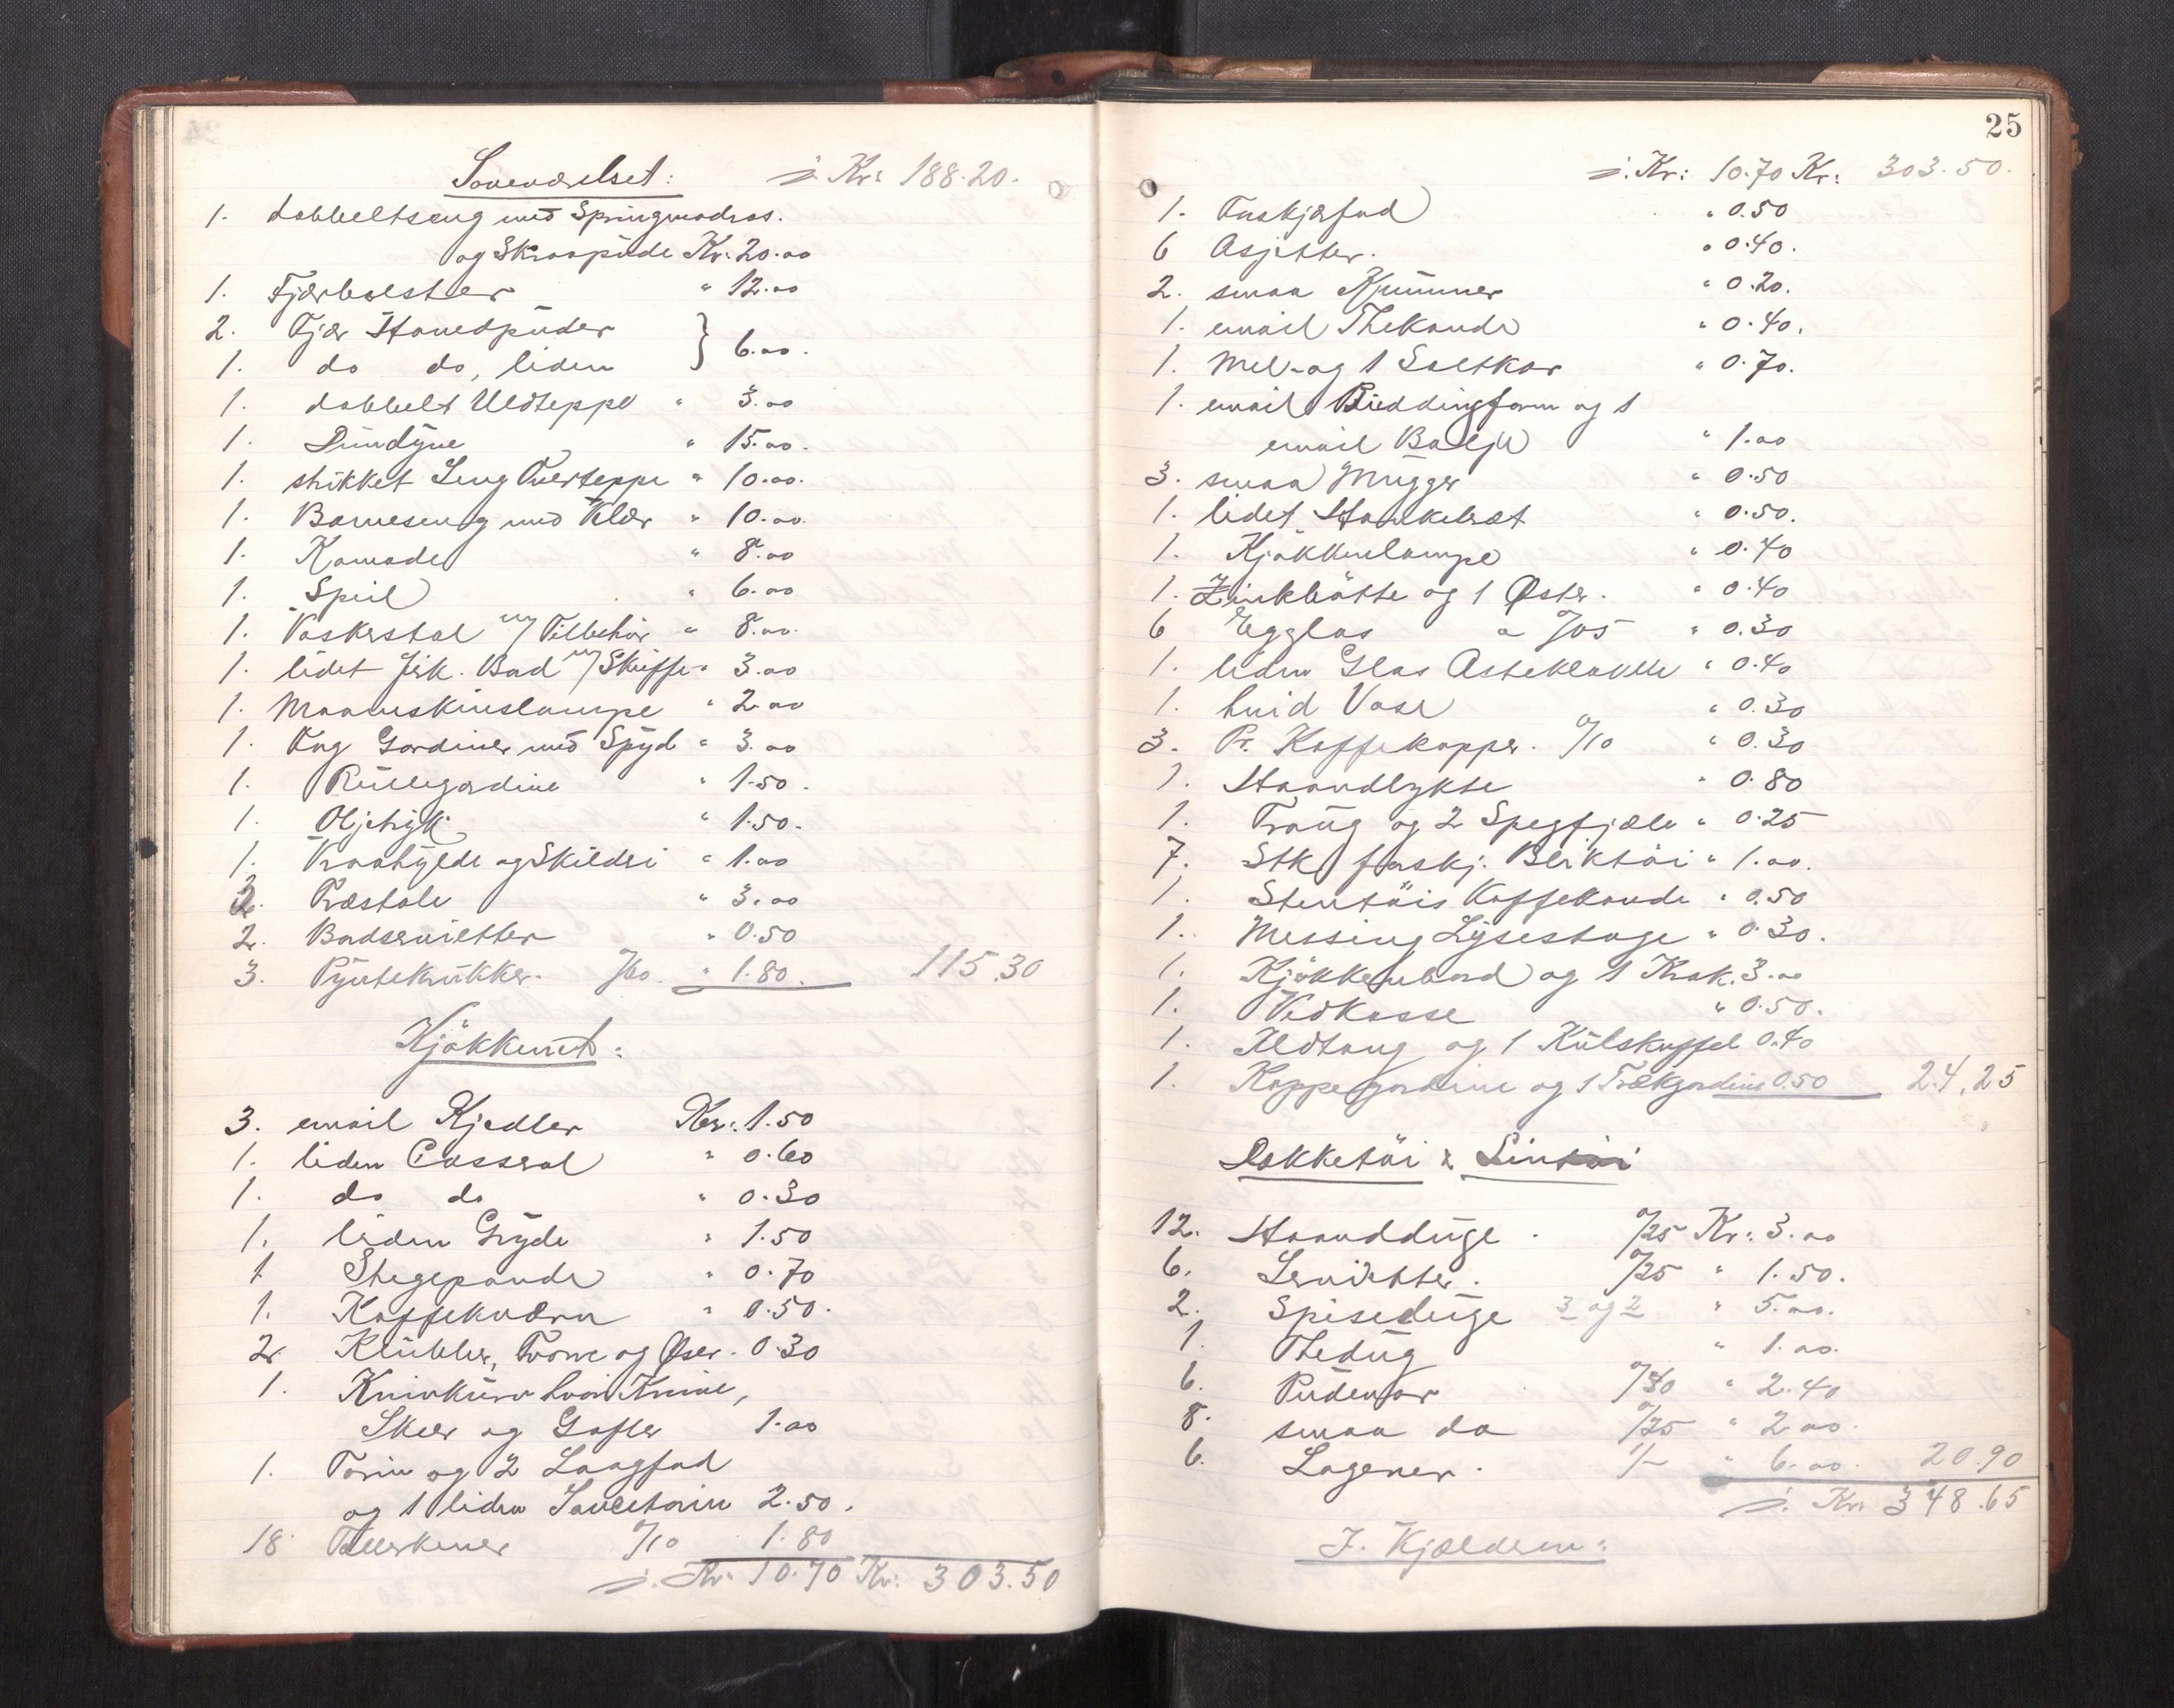 Soveværelset: ⸓ Kr: 188.20.
1. dobbeltseng med Springmadras.
og Skraapude Kr. 20.00
1. Fjærbolster " 12.00
2. Fjær Hovedpuder } 6.00.
1. do do, liden
1. dobbelt Uldteppe " 3.00
1. Dundyne " 15.00.
1. strikket Seng Overteppe " 10.00.
1. Barneseng med Klær " 10.00.
1. Komode " 8.00
1. Speil " 6.00
1. Vaskestol m/ Tilbehör " 8.00.
1. lidet firk. Bord m/ Skuffe " 3.00
1. Maaneskinslampe " 2.00
1. Fag Gardiner med Spyd " 3.00
1. Rullegardine " 1.50.
1. Oljetryk " 1.50.
1. Kraahylde og Skilderi " 1.00
2. Træstole " 3.00
2. Bordservietter " 0.50
3. Pyntekrukker. /60. " 1.80. 115.30
Kjøkkenet:
3. email Kjedler Kr: 1.50
1. liden Casserol " 0.60
1. do do " 0.30
1. liden Gryde " 1.50
1 Stegepande " 0.70
1. Kaffekværn " 0.50.
2. Klubber, Tvare og Øser. 0.30
1. Knivkurv hvori Knive,
Skeer og Gafler 1.00
1. Terin og 2 Langfad
og 1 liden Sauceterin 2.50.
18 Tallerkener a/10 1.80
Kr. 10.70 Kr: 303.50
25
Kr: 10.70 Kr: 303.50.
1. Fiskjefad " 0.50
6 Asjetter. " 0.40.
2. smaa Kummer " 0.20.
1. email Thekande " 0.40.
1. Mel- og 1 Saltkar " 0.70.
1. email Puddingform og 1
email Balje " 1.00
3. smaa Mugger " 0.50
1. lidet Hankebræt " 0.50.
1. Kjökkenlampe " 0.40
1. Zinkbötte og 1 Øster. " 0.40
6 Egglas a /05 " 0.30
1. liden Glas Ostekloke " 0.40
1. hvid Vase " 0.30
3. Pr. Kaffekopper. a/10 " 0.30
1. Haandlykte " 0.80
1. Traug og 2 Spegfjæle " 0.25
7. Stk forskj. Bliktöi " 1.00.
1. Stentöis Kaffekande " 0.50
1. Messing Lysestage " 0.30.
1. Kjøkkenbord og 1 Krak. 3.00
1. Vedkasse " 0.50.
1. Ildtang og 1 Kulskuffel 0.40
1. Kappegardine og 1 Trækgardine 0.50 24.25
Dækketöi & Lintöi
12. Haandduge. a/25 Kr: 3.00
6. Servietter. a/25 " 1.50.
2. Spiseduge 3 og 2 " 5.00.
1. Thedug " 1.00.
6. Pudevar a/40 " 2.40
8. smaa do a/25 " 2.00.
6. Lagener. 1/- " 6.00. 20.90
Kr: 348.65
I. Kjælderen: